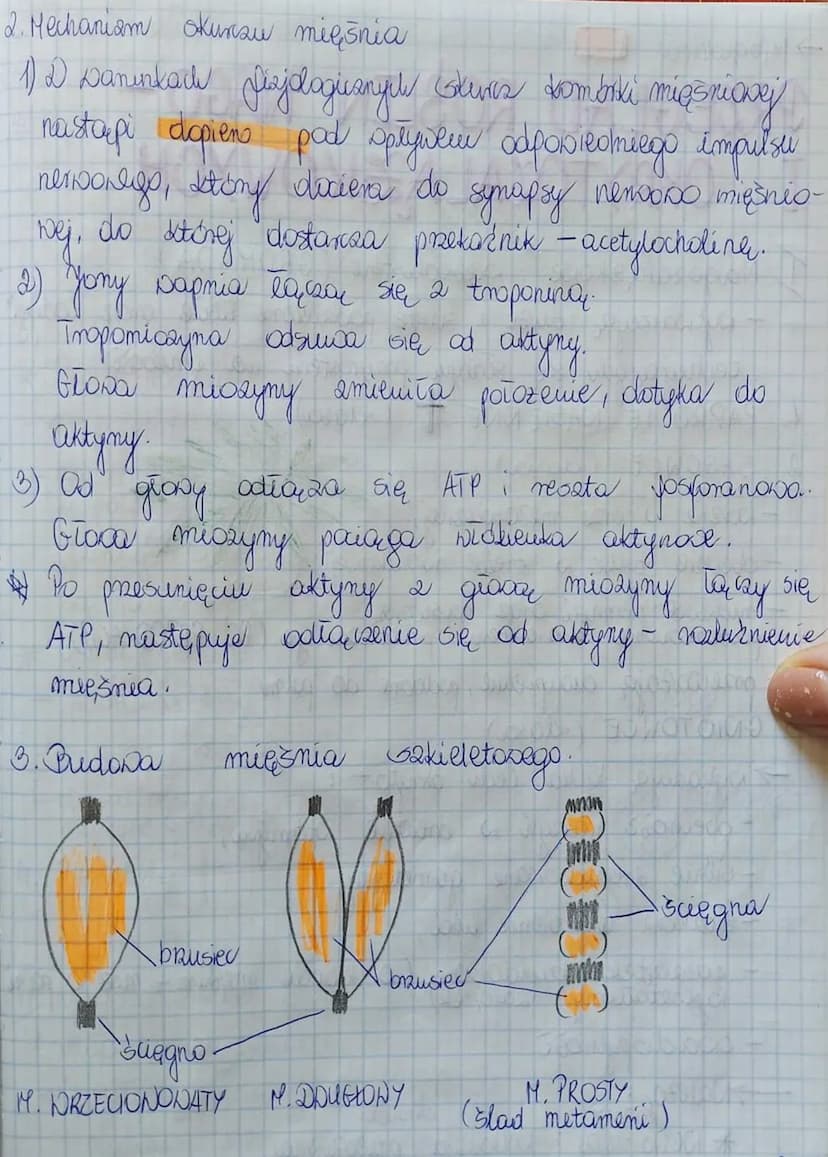 2. Mechanizm skurczu mięśnia
1) W warunkach fizjologicznych skurcz komórki mięśniowej
nastąpi dopiero pod wpływem odpowiedniego impulsu
nerwowego, który dociera do synapsy nerwowo mięśnio-
wej, do której dostarcza przekaźnik - acetylocholinę.
2) Jony wapnia łączą się z troponiną.
Tropomiozyna odsuwa się od aktyny.
Głowa miozyny zmieniła położenie, dotyka do
aktyny.
3) Od głowy odłącza się ATP i reszta fosforanowa.
Głowa miozyny pociąga włókienka aktynowe.
4) Po przesunięciu aktyny z głową miozyny łączy się
ATP, następuje odłączenie się od aktyny - rozluźnienie
mięśnia.
3. Budowa mięśnia szkieletowego.
ścięgna
brzusiec
brzusiec
ścięgno
M. WRZECIONOWATY M. DWUGŁOWY M. PROSTY
(ślad metamerii)